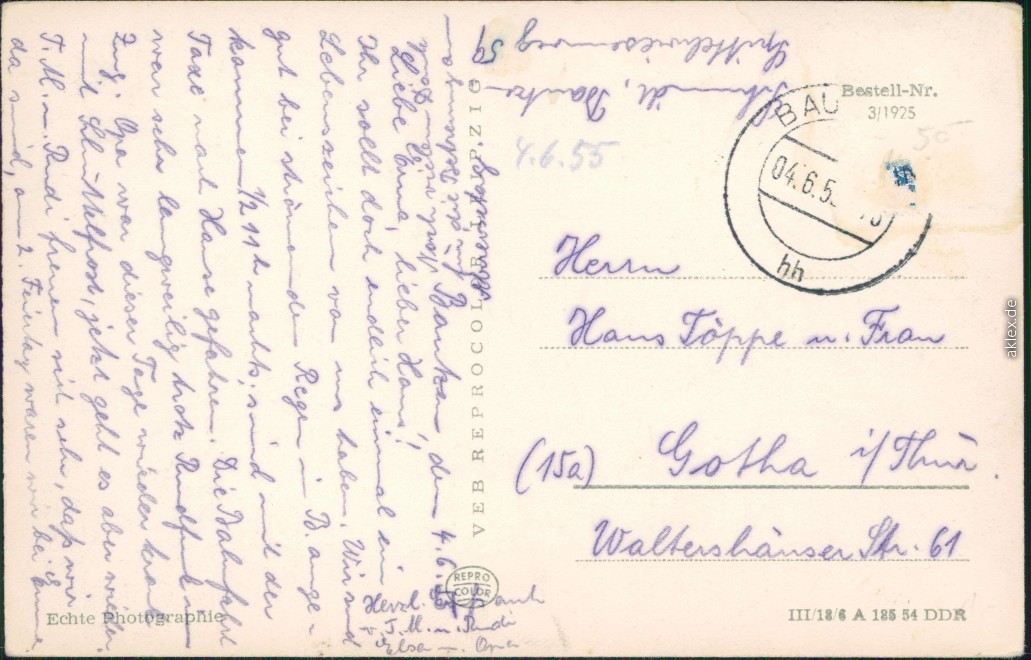 Schmidt, Bautzen
Spittelwiesenweg
59
4.6.55
Bestell-Nr.
3/1925
50
BAU
04.6.5
hh
Herrn
Hans Töppe u. Frau
(15a) Gotha i/Thür.
Waltershäuser Str. 61
III/18/6 A 185 54 DDR
VEB REPROCOLOR LEIPZIG
REPRO
COLOR
Echte Photographie
Bautzen, den 4.6.55
Liebe Erna, lieber Hans!
Ihr sollt doch endlich einmal ein
Lebenszeichen von uns haben. Wir sind
gut bei strömendem Regen in B. ange-
kommen, 1/2 11 h nachts, sind mit der
Taxe nach Hause gefahren. Die Bahnfahrt
war sehr langweilig trotz Rundfunk im
Zug. Opa war dieser Tage wieder krank
mit, jetzt geht es aber wieder.
T. M. u. Rudi freuen sich sehr, daß wir
da sind, am 2. Feiertag waren wir bei
Herzl.
T. M. u. Rudi
Elsa Opa
aklex.de